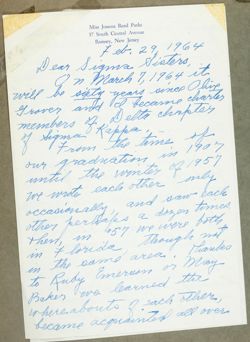 Miss Joanna Bard Parks
37 South Central Avenue
Ramsey, New Jersey
Feb. 29, 1964
Dear Sigma Sisters,
On March 7, 1964 it
will be sixty years since Olive
Grover and I became charter
members of Delta chapter
of Sigma Kappa.
From the time of
our graduation in 1907
until the winter of 1957
we wrote each other only
occasionally and saw each
other perhaps a dozen times
Then in '57 we were both
in Florida though not
in the same area. Thanks
to Ruby Emerson or May
Baker we learned the
whereabouts of each other,
became acquainted all over